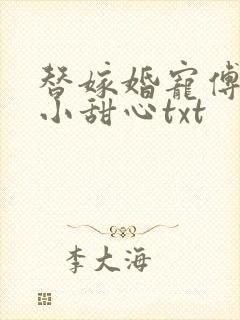 替嫁婚宠傅
小甜心txt
李大海